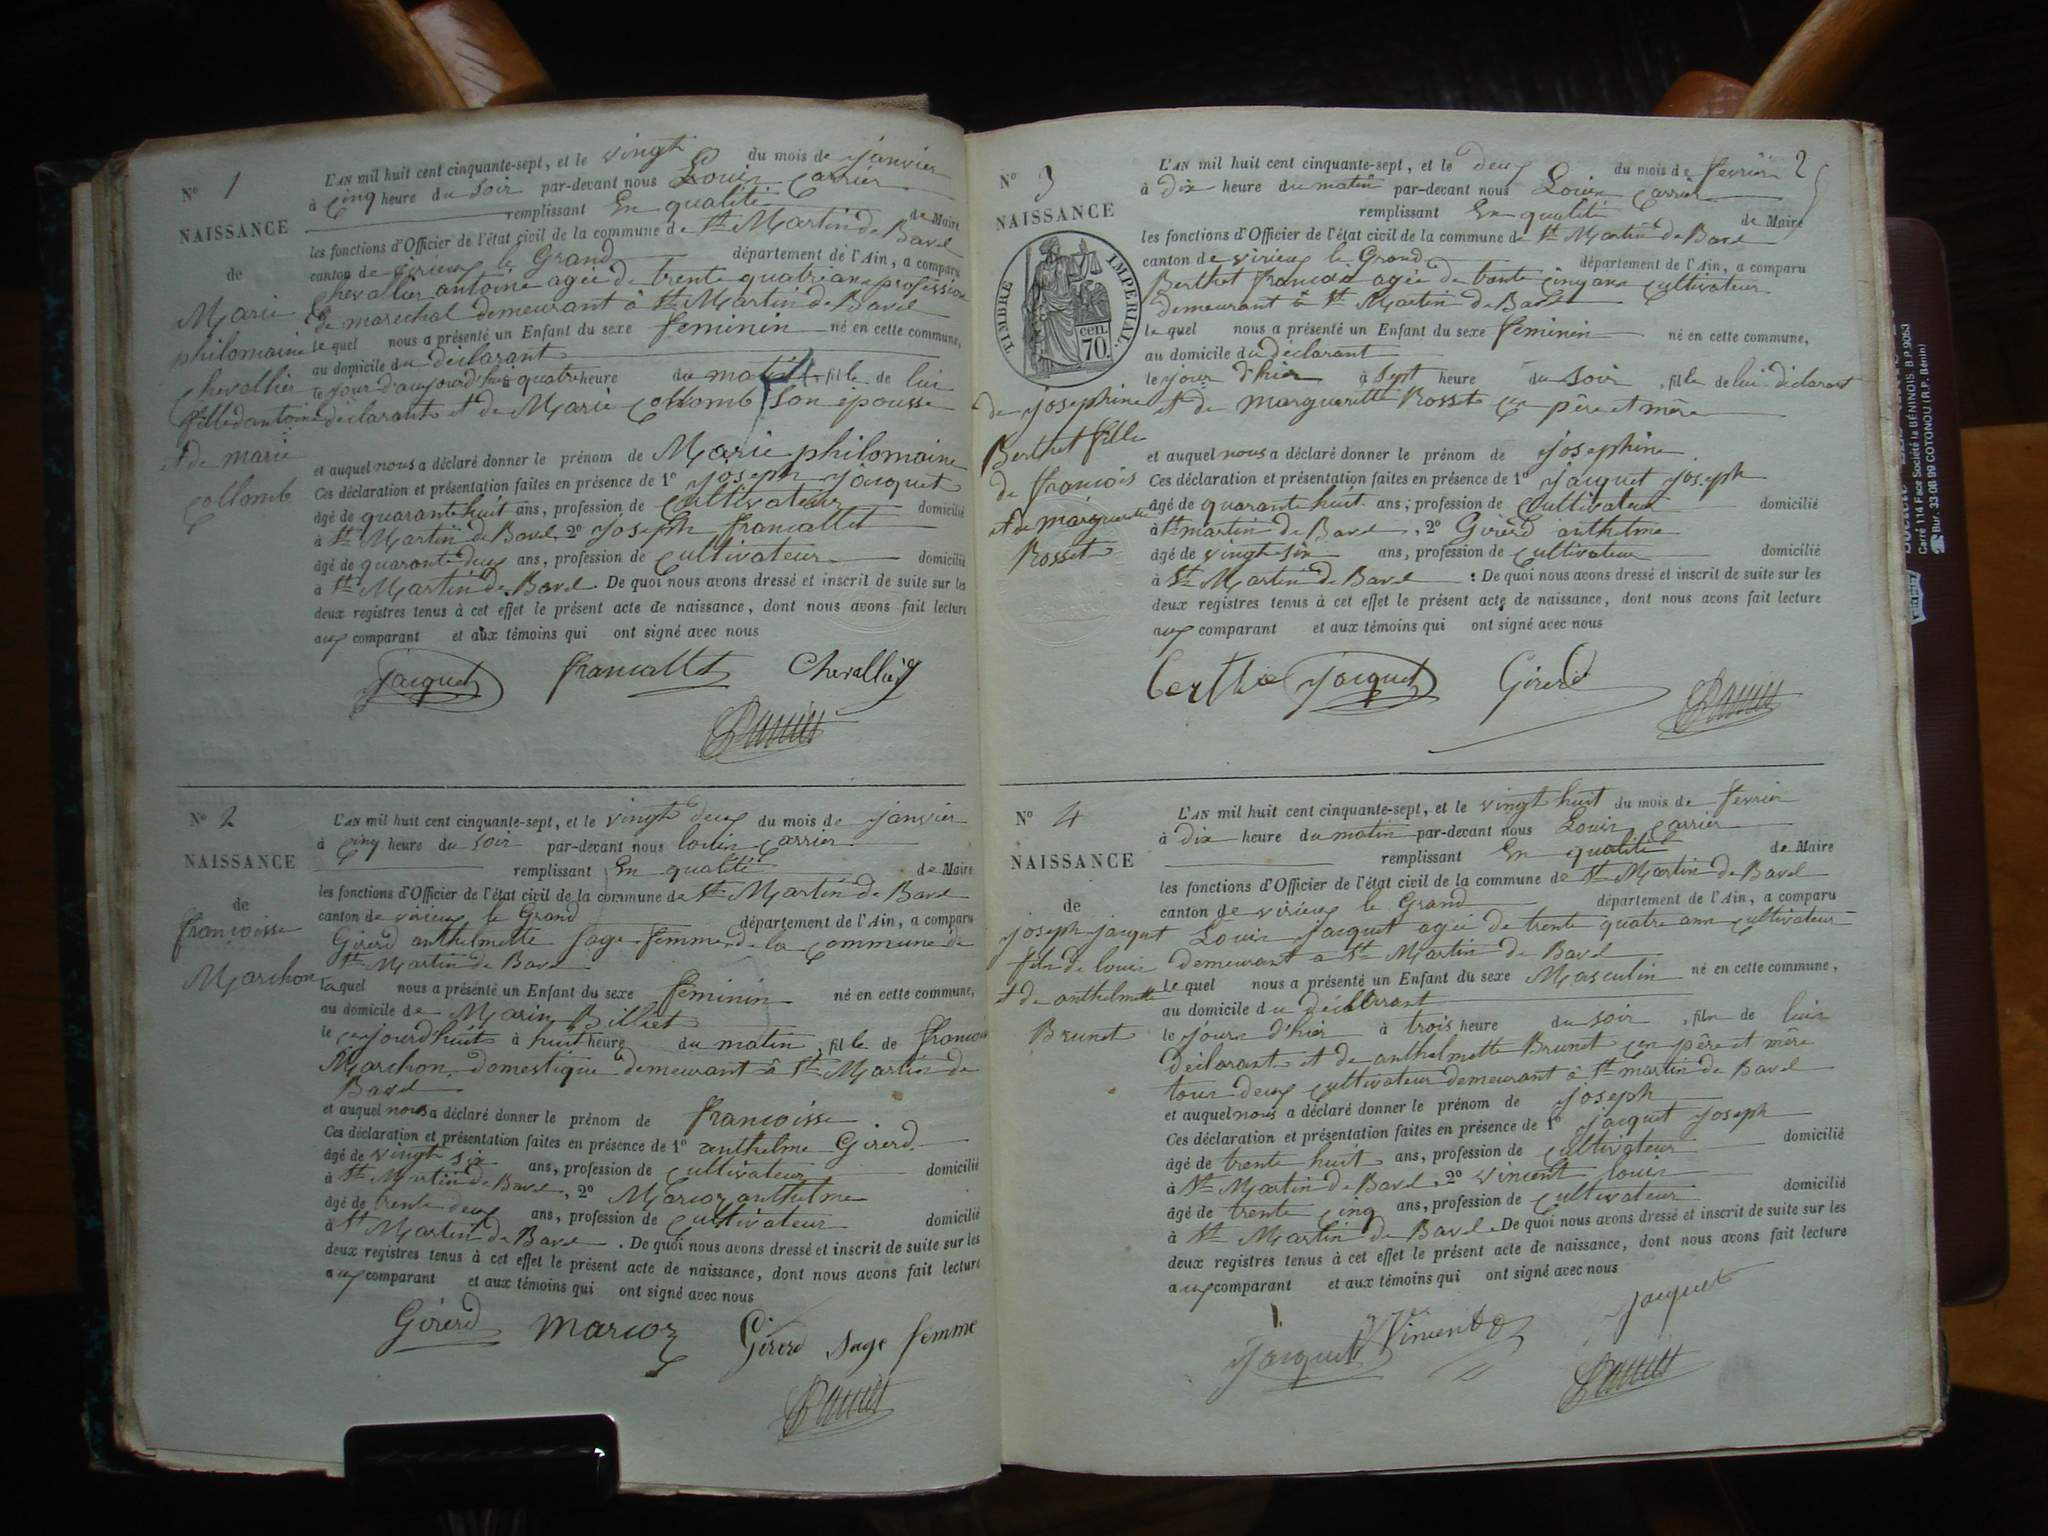 N° 1
NAISSANCE
de
Marie
philomaine
chevallier
fille d'antoine
et de marie
collomb
L'AN mil huit cent cinquante-sept, et le vingt du mois de janvier
à cinq heure du soir par-devant nous Louis Carrier
remplissant En qualité de Maire
les fonctions d'Officier de l'état civil de la commune de St Martin de Bavel
canton de virieux le Grand département de l'Ain, a comparu
chevallier antoine agée de trente quatre ans profession
de marechal demeurant à St Martin de Bavel
le quel nous a présenté un Enfant du sexe feminin né en cette commune,
au domicile du déclarant
le jour d'aujourd'hui à quatre heure du matin, fille de lui
declarant et de Marie collomb son épousse
et auquel nous a déclaré donner le prénom de Marie philomaine
Ces déclaration et présentation faites en présence de 1° joseph jacquet
âgé de quarante huit ans, profession de cultivateur domicilié
à St Martin de Bavel, 2° joseph francallet
âgé de quarante deux ans, profession de cultivateur domicilié
à St Martin de Bavel. De quoi nous avons dressé et inscrit de suite sur les
deux registres tenus à cet effet le présent acte de naissance, dont nous avons fait lecture
aux comparant et aux témoins qui ont signé avec nous
jacquet francallet Chevallier
N° 2
NAISSANCE
de
françoisse
Marchon
L'AN mil huit cent cinquante-sept, et le vingt deux du mois de janvier
à cinq heure du soir par-devant nous louis carrier
remplissant En qualité de Maire
les fonctions d'Officier de l'état civil de la commune de St Martin de Bavel
canton de virieux le Grand département de l'Ain, a comparu
Girerd anthelmette sage femme de la commune de
St Martin de Bavel
la quel nous a présenté un Enfant du sexe féminin né en cette commune,
au domicile de Marin Billiet
le jourd'huit à huit heure du matin, fille de francois
Marchon domestique demeurant à St Martin de
Bavel
et auquel nous a déclaré donner le prénom de francoisse
Ces déclaration et présentation faites en présence de 1° anthelme Girerd
âgé de vingt six ans, profession de cultivateur domicilié
à St Martin de Bavel, 2° Marcoz anthelme
âgé de trente deux ans, profession de cultivateur domicilié
à St Martin de Bavel. De quoi nous avons dressé et inscrit de suite sur les
deux registres tenus à cet effet le présent acte de naissance, dont nous avons fait lecture
aux comparant et aux témoins qui ont signé avec nous
Girerd Marcoz Girerd sage femme
2
N° 3
NAISSANCE
TIMBRE IMPERIAL.
70. cen.
de josephine
Berthet fille
de francois
et de marguerite
Rosset
L'AN mil huit cent cinquante-sept, et le deux du mois de fevrier
à dix heure du matin par-devant nous Louis Carrier
remplissant En qualité de Maire
les fonctions d'Officier de l'état civil de la commune de St Martin de Bavel
canton de virieux le Grand département de l'Ain, a comparu
Berthet francois agée de trente cinq ans cultivateur
demeurant à St Martin de Bavel
le quel nous a présenté un Enfant du sexe feminin né en cette commune,
au domicile du déclarant
le jour d'hier à sept heure du soir, fille de lui déclarant
et de marguerite Rosset ces père et mère
et auquel nous a déclaré donner le prénom de josephine
Ces déclaration et présentation faites en présence de 1° jacquet joseph
âgé de quarante huit ans, profession de cultivateur domicilié
à St martin de Bavel, 2° Girerd anthelme
âgé de vingt six ans, profession de cultivateur domicilié
à St Martin de Bavel. De quoi nous avons dressé et inscrit de suite sur les
deux registres tenus à cet effet le présent acte de naissance, dont nous avons fait lecture
aux comparant et aux témoins qui ont signé avec nous
jacquet Girerd
N° 4
NAISSANCE
de
joseph jacquet
fils de louis
et de anthelmette
Brunet
L'AN mil huit cent cinquante-sept, et le vingt huit du mois de fevrier
à dix heure du matin par-devant nous Louis carrier
remplissant En qualité de Maire
les fonctions d'Officier de l'état civil de la commune de St Martin de Bavel
canton de virieux le Grand département de l'Ain, a comparu
Louis jacquet agée de trente quatre ans cultivateur
demeurant à St Martin de Bavel
le quel nous a présenté un Enfant du sexe Masculin né en cette commune,
au domicile du déclarant
le jours d'hier à trois heure du soir, fils de luis
déclarant et de anthelmette Brunet ces père et mère
tous deux cultivateur demeurant à St martin de Bavel
et auquel nous a déclaré donner le prénom de joseph
Ces déclaration et présentation faites en présence de 1° jacquet joseph
âgé de trente huit ans, profession de cultivateur domicilié
à St Martin de Bavel, 2° vincent louis
âgé de trente cinq ans, profession de cultivateur domicilié
à St Martin de Bavel. De quoi nous avons dressé et inscrit de suite sur les
deux registres tenus à cet effet le présent acte de naissance, dont nous avons fait lecture
aux comparant et aux témoins qui ont signé avec nous
jacquet Vincent jacquet
Carré 114 Face Société la BÉNINOIS. B.P. 9063
Bur. 33-08-99 COTONOU (R.P. Bénin)